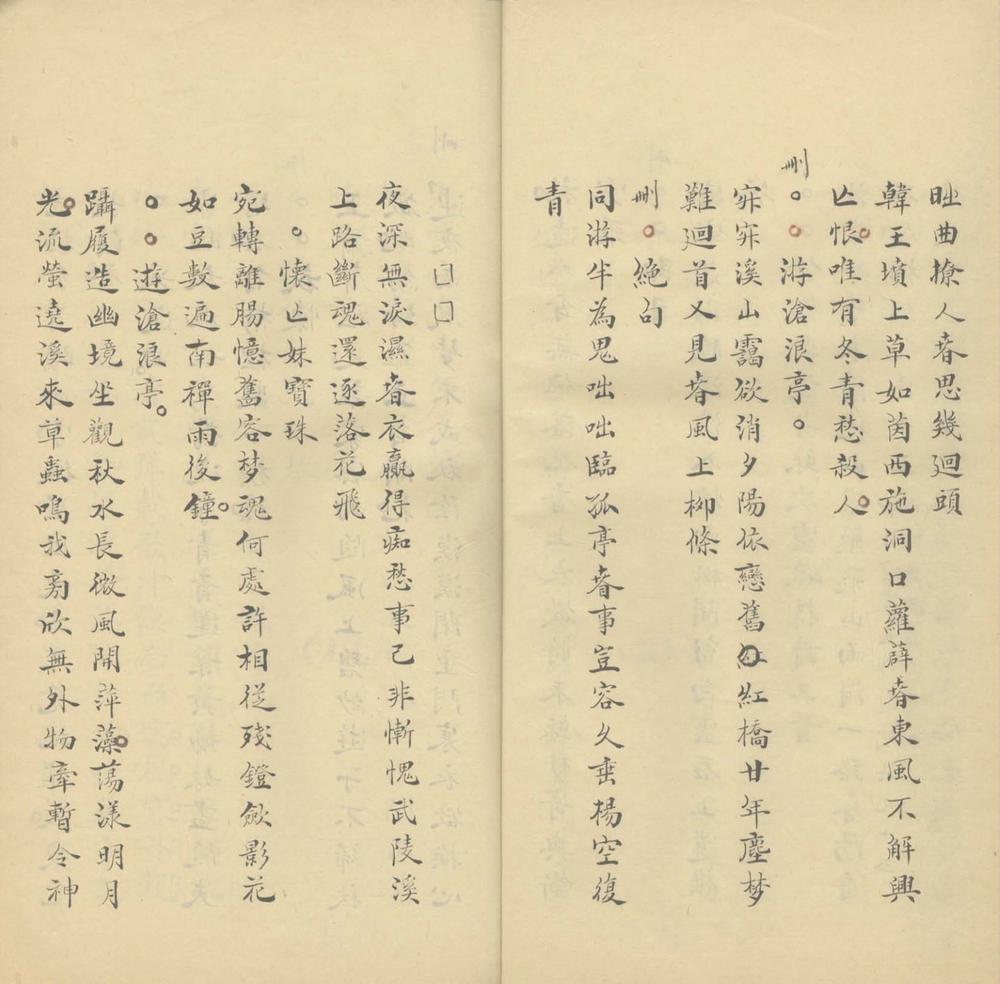 昢曲撩人春思幾廻頭
韓王墳上草如茵西施洞口蘿薜春東風不解興
亾恨唯有冬青愁殺人
刪。。游滄浪亭。
穼穼溪山靄欲消夕陽依戀舊紅紅橋廿年塵梦
難廻首又見春風上柳條
刪。絕句
同游半為鬼咄咄臨孤亭春事豈容久垂楊空復
青
□□
夜深無淚濕春衣贏得痴愁事已非慚愧武陵溪
上路斷魂還逐落花飛
。懷亾妹寶珠
宛轉離腸憶舊容梦魂何處許相從殘鐙歛影花
如豆數遍南禪雨後鐘
。。遊滄浪亭。
躡履造幽境坐觀秋水長微風開萍藻蕩漾明月
光流螢遶溪來草蟲鳴我旁欣無外物牽暫令神